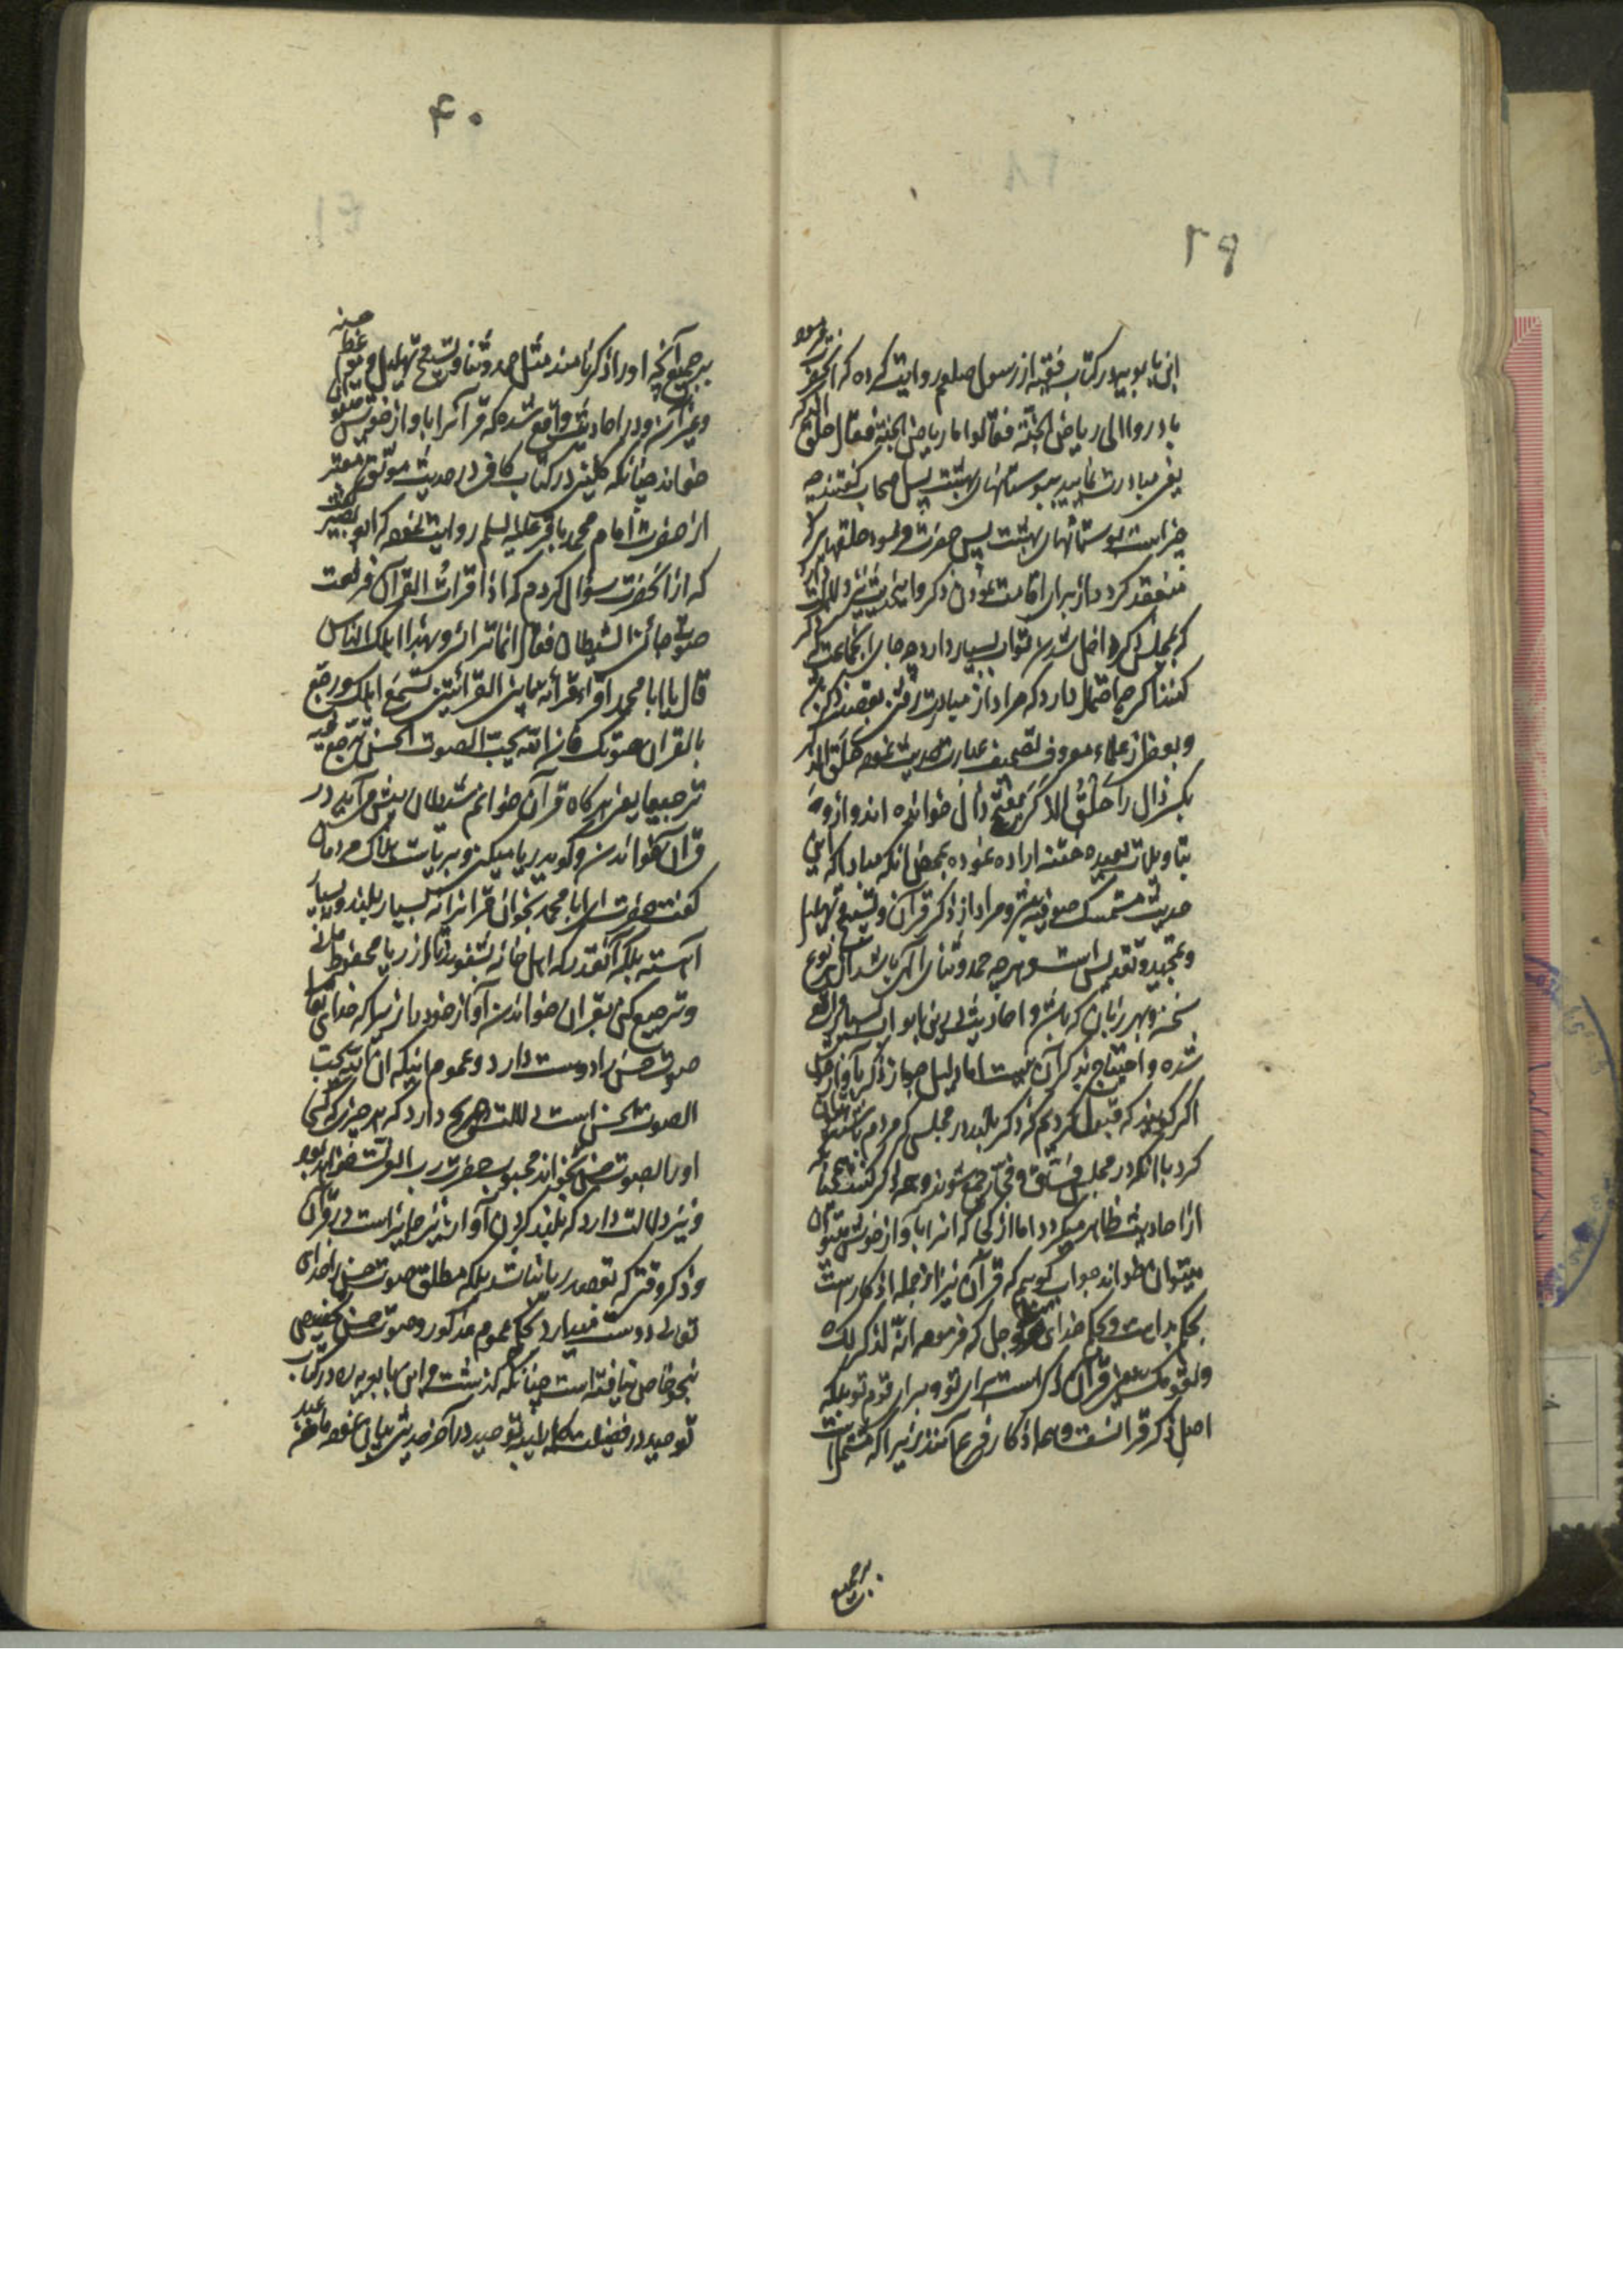 ۳۹
ابن بابویه در کتاب فقیه از رسول صلعم روایت کرده که آنحضرت فرمود
بادروا الی ریاض الجنة فقالوا ما ریاض الجنة فقال حلق الذکر
یعنی مبادرت نمایید ببوستانهای بهشت پس اصحاب گفتند چه
چیز است بوستانهای بهشت پس حضرت فرمود حلقهای ذکر
منعقد کرد از برای اقامت نمودن ذکر و این حدیث نیز دلالت دارد
که بمجلس ذکر داخل شدن ثواب بسیار دارد چه جای انجماعت که ذکر
کنند اگر چه احتمال دارد که مراد از مبادرت رفتن بقصد ذکر
و بعضی از علماء معروف تصحیف عبارت حدیث نموده حلق الذکر
بکسر ذال را حلق الذکر بفتح ذال خوانده اند و از وی
بتاویلات بعیده ختنه اراده نموده بمحض انکه مبادا که این
حدیث متمسک صوفیه شود و مراد از ذکر قرآن و تسبیح و تهلیل
و تمجید و تقدیس است و هر چه حمد و ثنای الهی باشد از هر نوع
سخن و بهر زبان که باشد و احادیث درین باب بسیار واقع
شده و احتیاج بذکر آن نیست اما دلیل جواز ذکر بآواز خوش
اگر گویند که قبول کردیم که ذکر بلند در مجلسی که مردم باشند میتوان
کرد با انکه در مجلس فساق و فجار جمع شوند و همه ذکر کنند چنانچه
از احادیث ظاهر میگردد اما از کجا که انرا بآواز خوش میتوان
میتوان خواند جواب گوییم که قرآن نیز از جمله اذکار است
بحکم بداهت و بحکم خدای عز و جل که فرموده انه لذکر لک
و لقومک یعنی قرآن ذکر است برای تو و برای قوم تو بلکه
اصل ذکر قرانست و همه اذکار فرع آنند زیرا که مشتمل است
بر جمیع
۴۰
بر جمیع آنچه او را ذکر نامند مثل حمد و ثنا و تسبیح و تهلیل و موعظه حسنه
و غیر آن و در احادیث واقع شده که قرآنرا بآواز خوش میتوان
خواند چنانکه کلینی در کتاب کافی در حدیث موثق معتبر
از حضرت امام محمد باقر علیه السلم روایت نموده که ابو بصیر گفت
که از آنحضرت سؤال کردم که اذا قرأت القرآن فرفعت
صوتی جائنی الشیطان فقال انما ترائی بهذا اهلک و الناس
قال یا ابا محمد اقرأ قرأة ما بین القرائتین تسمع اهلک و رجع
بالقرآن صوتک فان الله یحب الصوت الحسن یرجع فیه
ترجیعا یعنی هر کاه قرآن خوانم شیطان پیش من آید در
قرآن خواندن و گوید ریا میکنی و بریات هلاک مردمان
گفت حضرت ای ابا محمد بخوان قرآنرا نه بسیار بلند و نه بسیار
آهسته بلکه آنقدر که اهل خانه بشنوند تا از ریا محفوظ مانی
و ترجیع کن بقرآن خواندن آواز خود را زیرا که خدای تعالی
صوت حسن را دوست دارد و عموم اینکه ان الله یحب
الصوت الحسن است دلالت صریح دارد که هر چیزی که کسی
او را بصوت حسن بخواند محبوب حضرت رب العزت خواهد بود
و نیز دلالت دارد که بلند کردن آواز نیز جایز است در قرآن
و ذکر وقتی که بقصد ریا نباشد بلکه مطلق صوت حسن را خدای
تعالی دوست میدارد بحکم عموم مذکور و صوت حسن تخصیص
بنحو خاص نیافته است چنانکه گذشت و ابن بابویه در کتاب
توحید در فضیلت کلمه طیبه توحید در آخر حدیثی بیان نموده ما من عبد